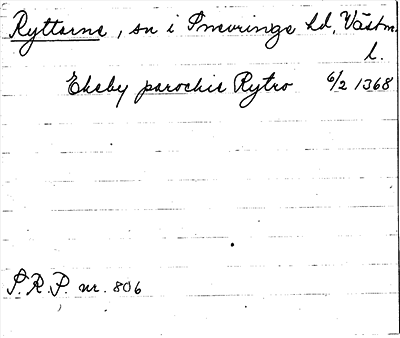 Ryttarne, sn i Snevringe hd, Västm.
l.
Ekeby parochie Rytro 6/2 1368
S.R.P. nr. 806